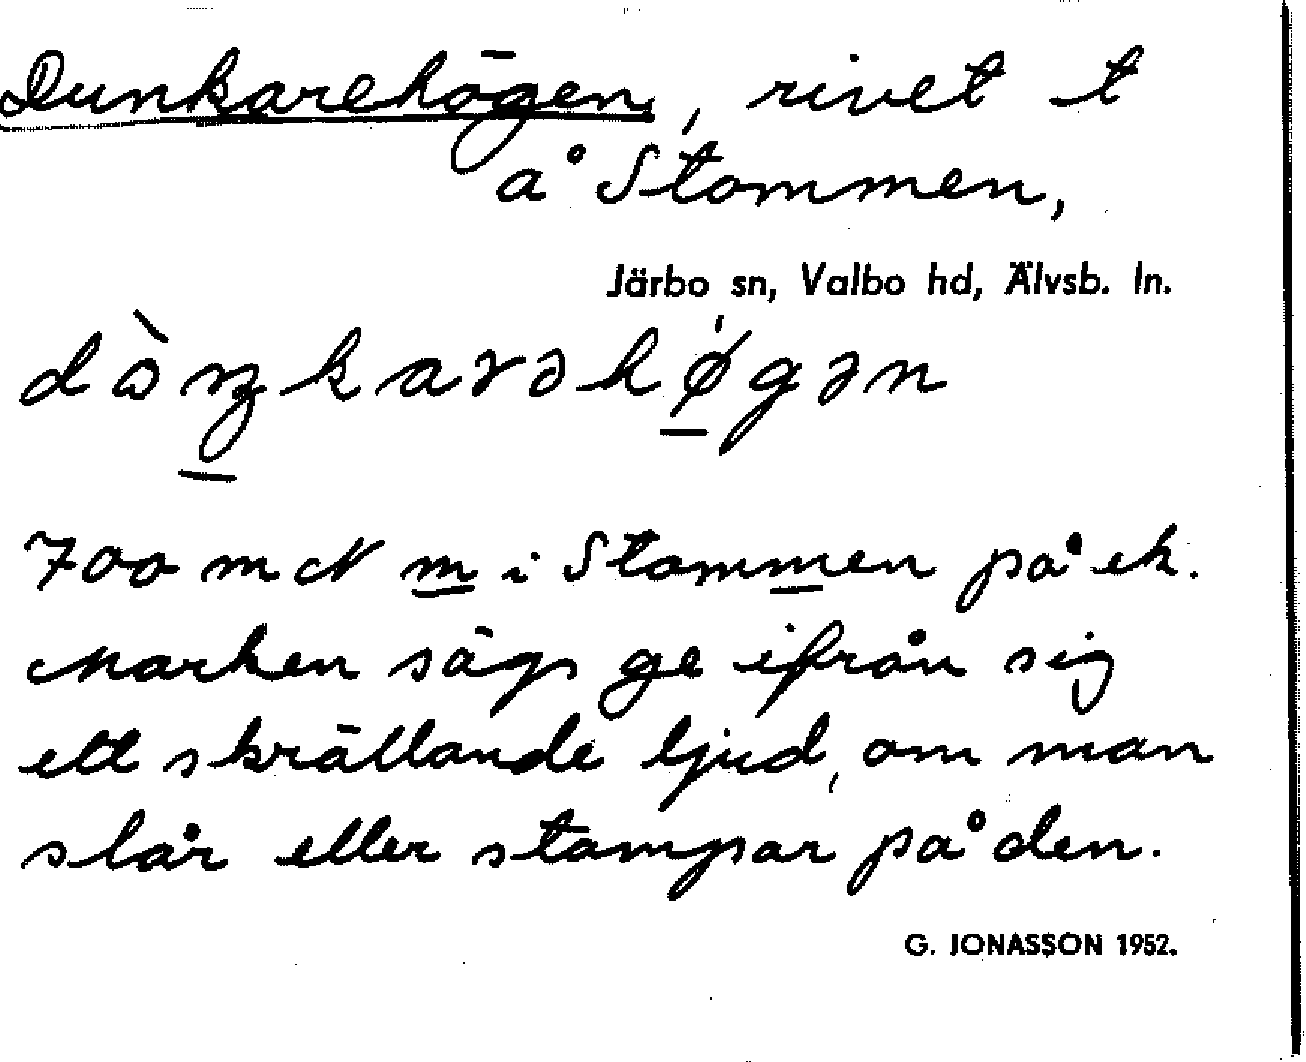 Dunkarehögen, rivet t
å Stommen,
Järbo sn, Valbo hd, Älvsb. ln.
700 m N m i Stommen på ek.
Marken sägs ge ifrån sig
ett skrällande ljud, om man
slår eller stampar på den.
G. JONASSON 1952.